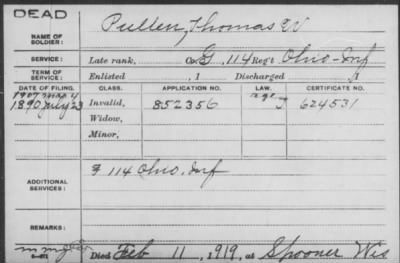 DEAD
NAME OF SOLDIER: Pullen, Thomas W
SERVICE: Late rank, Co. G, 114 Reg't Ohio Inf
TERM OF SERVICE: Enlisted , 1 Discharged , 1
DATE OF FILING. CLASS. APPLICATION NO. LAW. CERTIFICATE NO.
1907 May 4 age
1890 July 23 Invalid, 852356 J 624531
Widow,
Minor,
ADDITIONAL SERVICES: F 114 Ohio. Inf
REMARKS:
Died Feb 11, 1919, at Spooner Wis